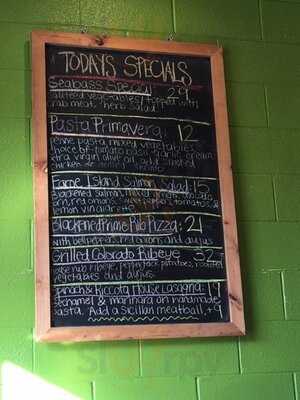 TODAYS SPECIALS
Seabass Special 29
vegetables/ topped with
crab meat, herb salad
Pasta Primavera, 12
penne pasta mixed vegetables,
choice of tomato cream
extra virgin olive oil, add smoked
chicken or
Island Salmon Salad: 15
blackened salmon, mixed greens, avocado,
corn, red onions, tomato &
lemon vinaigrette
Blackened Prime Rib Pizza: 21
with bell peppers, red onions and au jus
Grilled Colorado Ribeye 32
ribeye, potatoes, roasted
vegetables and au jus.
Spinach & Ricotta House Lasagna: 19
Bechamel & marinara on handmade
pasta. Add a Sicilian meatball, +4